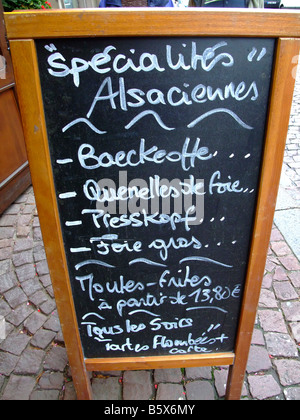 "Spécialités"
Alsaciennes
- Baeckeoffe...
- Quenelles de foie...
- Presskopf...
- Foie gras...
Moules-frites
à partir de 13,80€
"Tous les Soirs"
Tartes Flambées +
carte